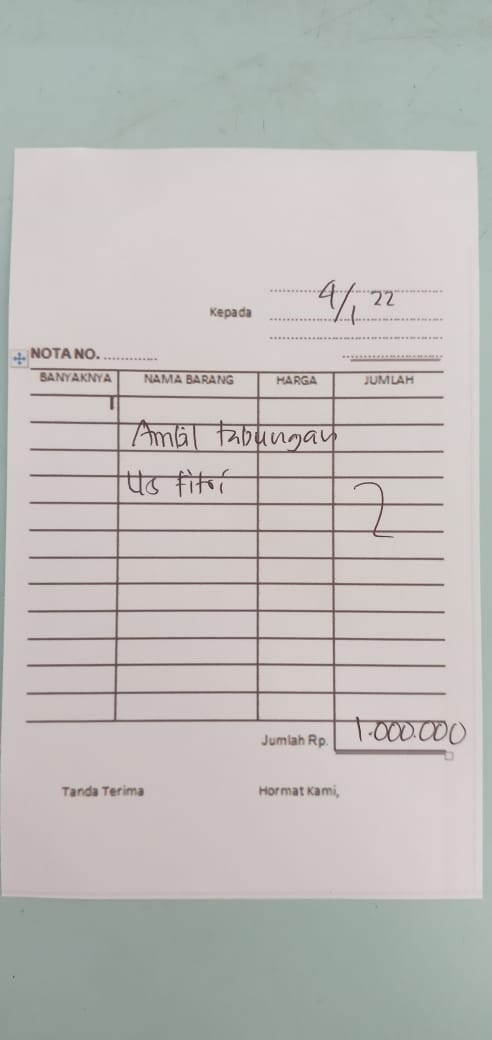 4/1 22
Kepada
NOTA NO. ............
BANYAKNYA NAMA BARANG HARGA JUMLAH
Ambil tabungan
Us fitri
2
Jumlah Rp. 1.000.000
Tanda Terima Hormat Kami,